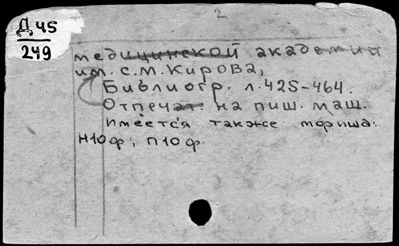 2
Д 45
249
медицинской академии
им. С.М. Кирова,
Библиогр. л. 425-464.
Отпечат. на пиш. маш.
Имеется также афиша:
Н10ф; П10ф.